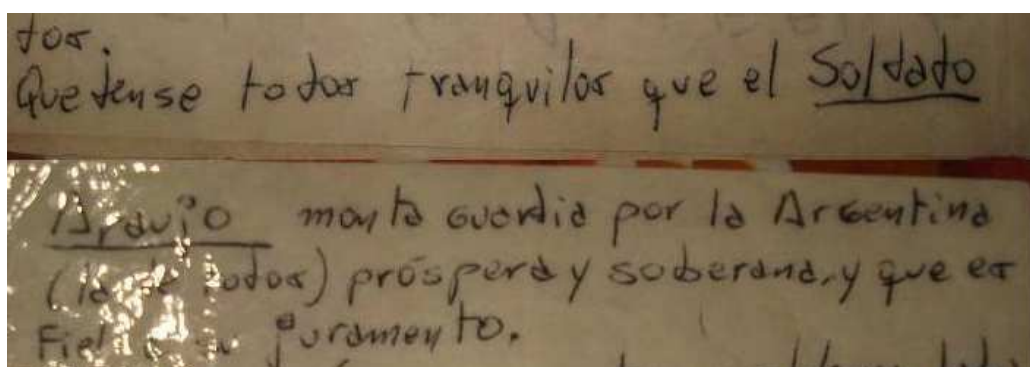 dos.
Quedense todos tranquilos que el Soldado
Araujo monta guardia por la Argentina
(la de todos) próspera y soberana, y que es
Fiel a su juramento.